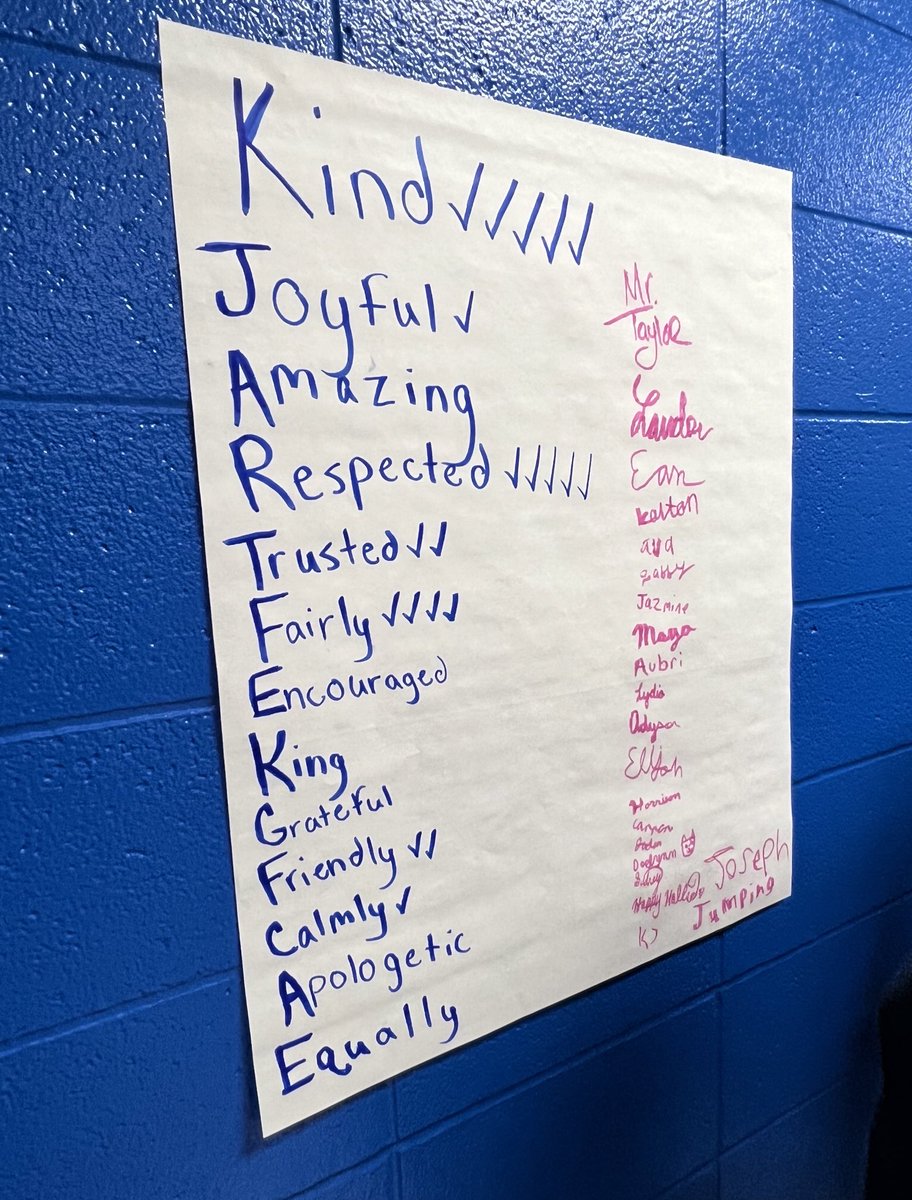 Kind ✓✓✓✓✓
Joyful ✓
Amazing
Respected ✓✓✓✓✓
Trusted ✓✓
Fairly ✓✓✓✓
Encouraged
King
Grateful
Friendly ✓✓
Calmly ✓
Apologetic
Equally
Mr.
Taylor
Landon
Ean
kelton
Gabby
Jazmine
Maya
Aubri
Lydia
Adyson
Elijah
Harrison
Joseph
Jumping
KJ